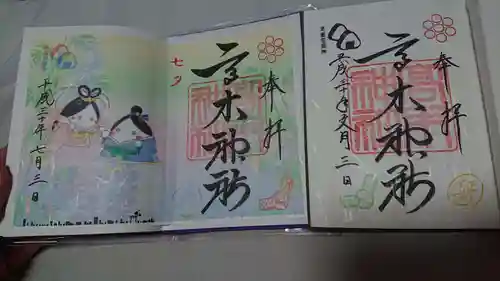 七夕
奉拝
高木神社
平成三十年七月三日
奉拝
高木神社
平成三十年文月三日